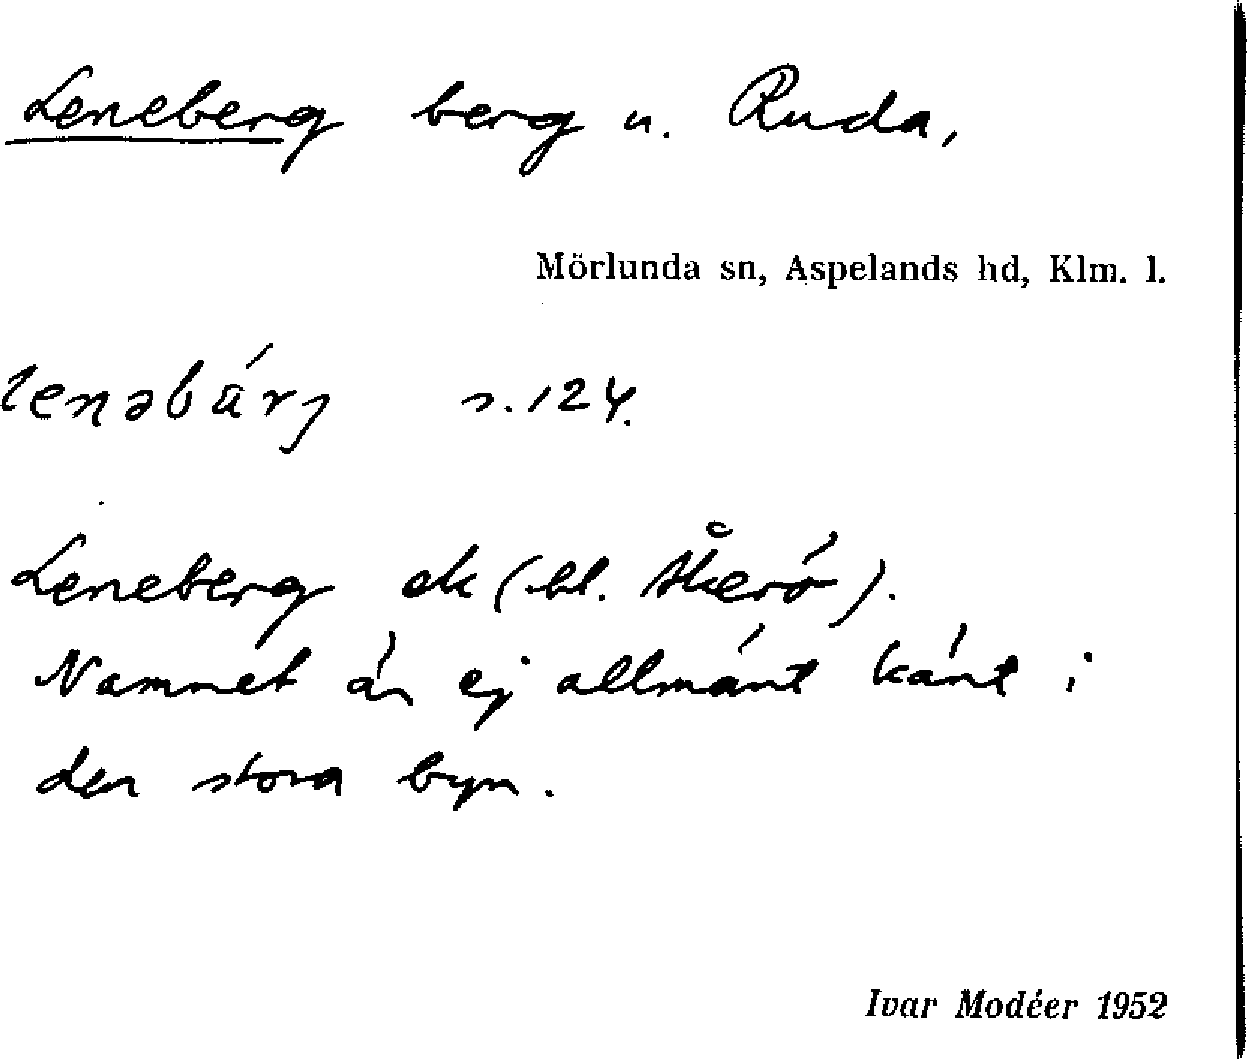 Leneberg berg u. Ruda,
Mörlunda sn, Aspelands hd, Klm. l.
lenəbä́rj s. 124.
Leneberg ek (bl. Åkerö).
Namnet är ej allmänt känt i
den stora byn.
Ivar Modéer 1952